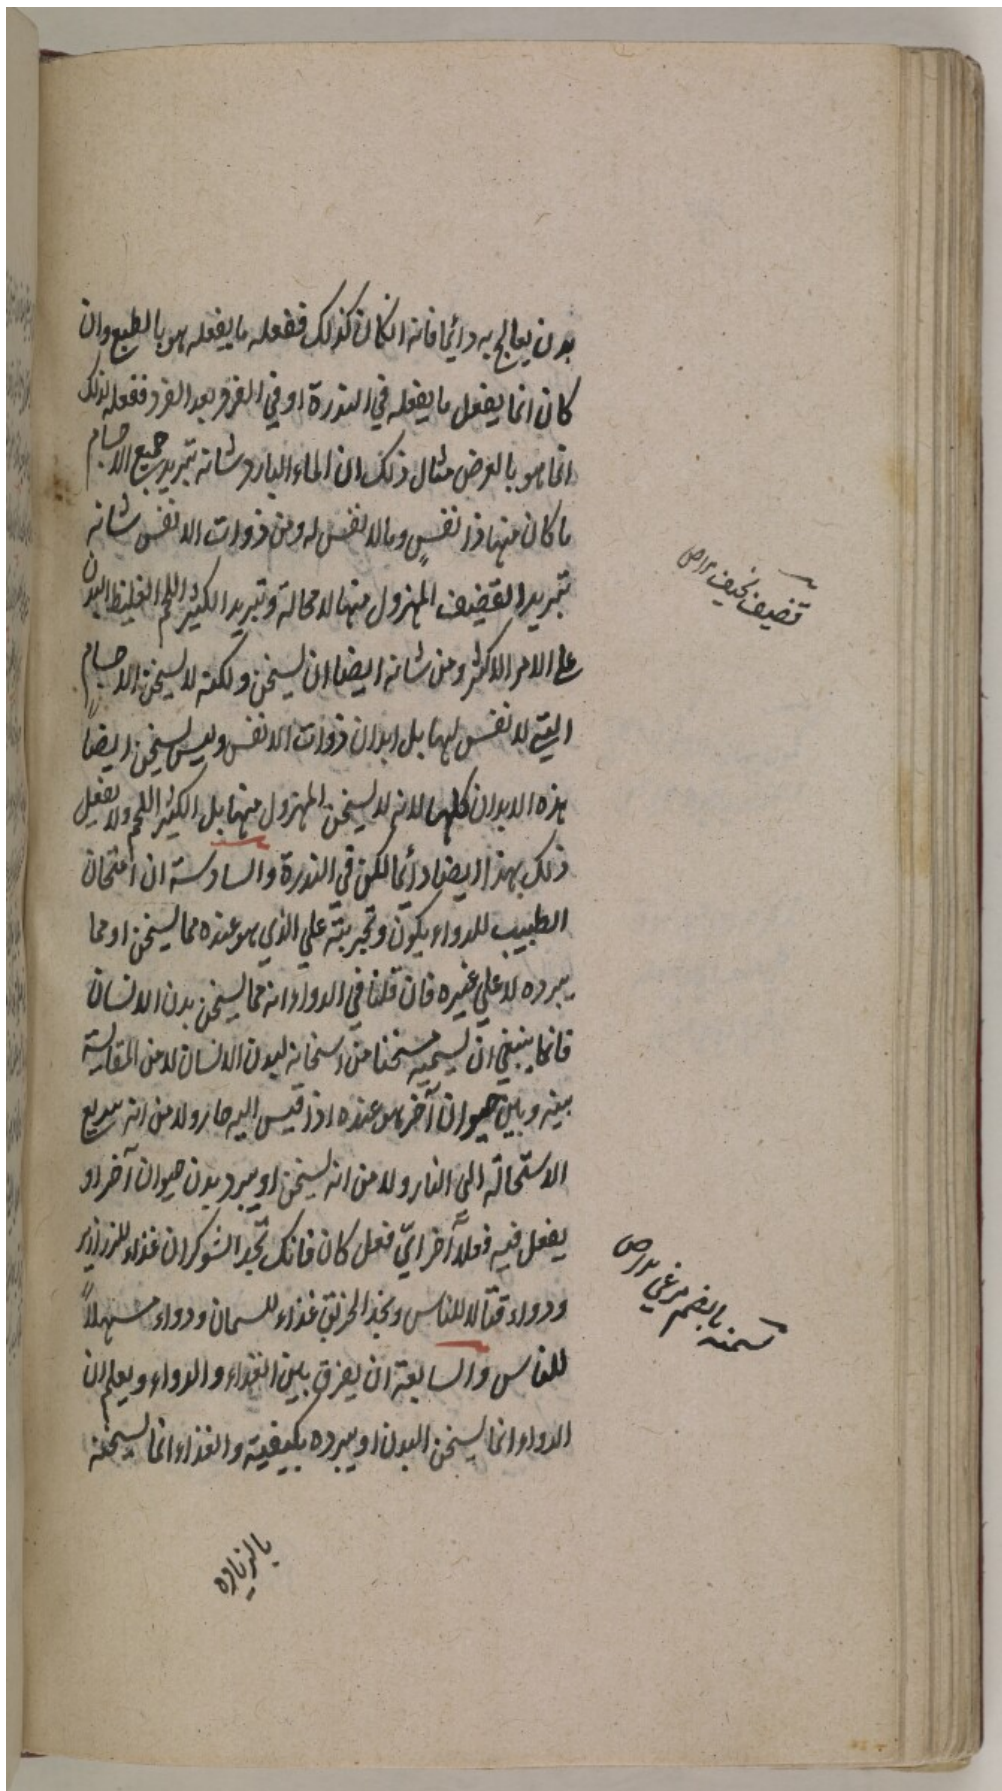 بدن يعالج به دائما فانه انكان كذلك ففعله ما يفعله هو بالطبع وان
كان انما يفعل ما يفعله في الندرة او في الفرد بعد الفرد ففعله لذلك
انما هو بالعرض مثال ذلك ان الماء البارد شانه تبريد جميع الاجسام
ما كان منها ذا نفسٍ وما لا نفس له ومن ذوات الانفس شانه
تبريد القضيف المهزول منها لا محالة وتبريد الكثير اللحم الغليظ البدن
على الامر الاكثر ومن شانه ايضا ان يسخن ولكنه لا يسخن الاجسام
التي لا نفس لها بل ابدان ذوات الانفس وليس يسخن ايضاً
هذه الابدان كلها لانه لا يسخن المهزول منها بل الكثير اللحم ولا يفعل
ذلك بهذا ايضا دائما لكن في الندرة والسادسة ان امتحان
الطبيب للدواء يكون وتجربته علي الذي هو عنده مما يسخن او مما
يبرده لا علي غيره فان قلنا في الدواء انه مما يسخن بدن الانسان
فانما ينبغي ان يسميه مسخنا من اسخانه لبدن الانسان لا من المقايسة
بينه وبين حيوان آخر هو عنده اذا قيس اليه حار ولا من انه سريع
الاستحالة الى النار ولا من انه يسخن او يبرد بدن حيوان آخر او
يفعل فيه فعلاً آخر ايّ فعل كان فانك تجد الشوكران غذاء للزرازير
ودواء قتالا للناس وتجد الخربق غذاء للسمان ودواء مسهلاً
للناس والسابعة ان يفرق بين الغذاء والدواء ويعلم ان
الدواء انما يسخن البدن او يبرده بكيفيته والغذاء انما يسخنه
بالزيادة
قضيف نحيف
بالضم مرغي